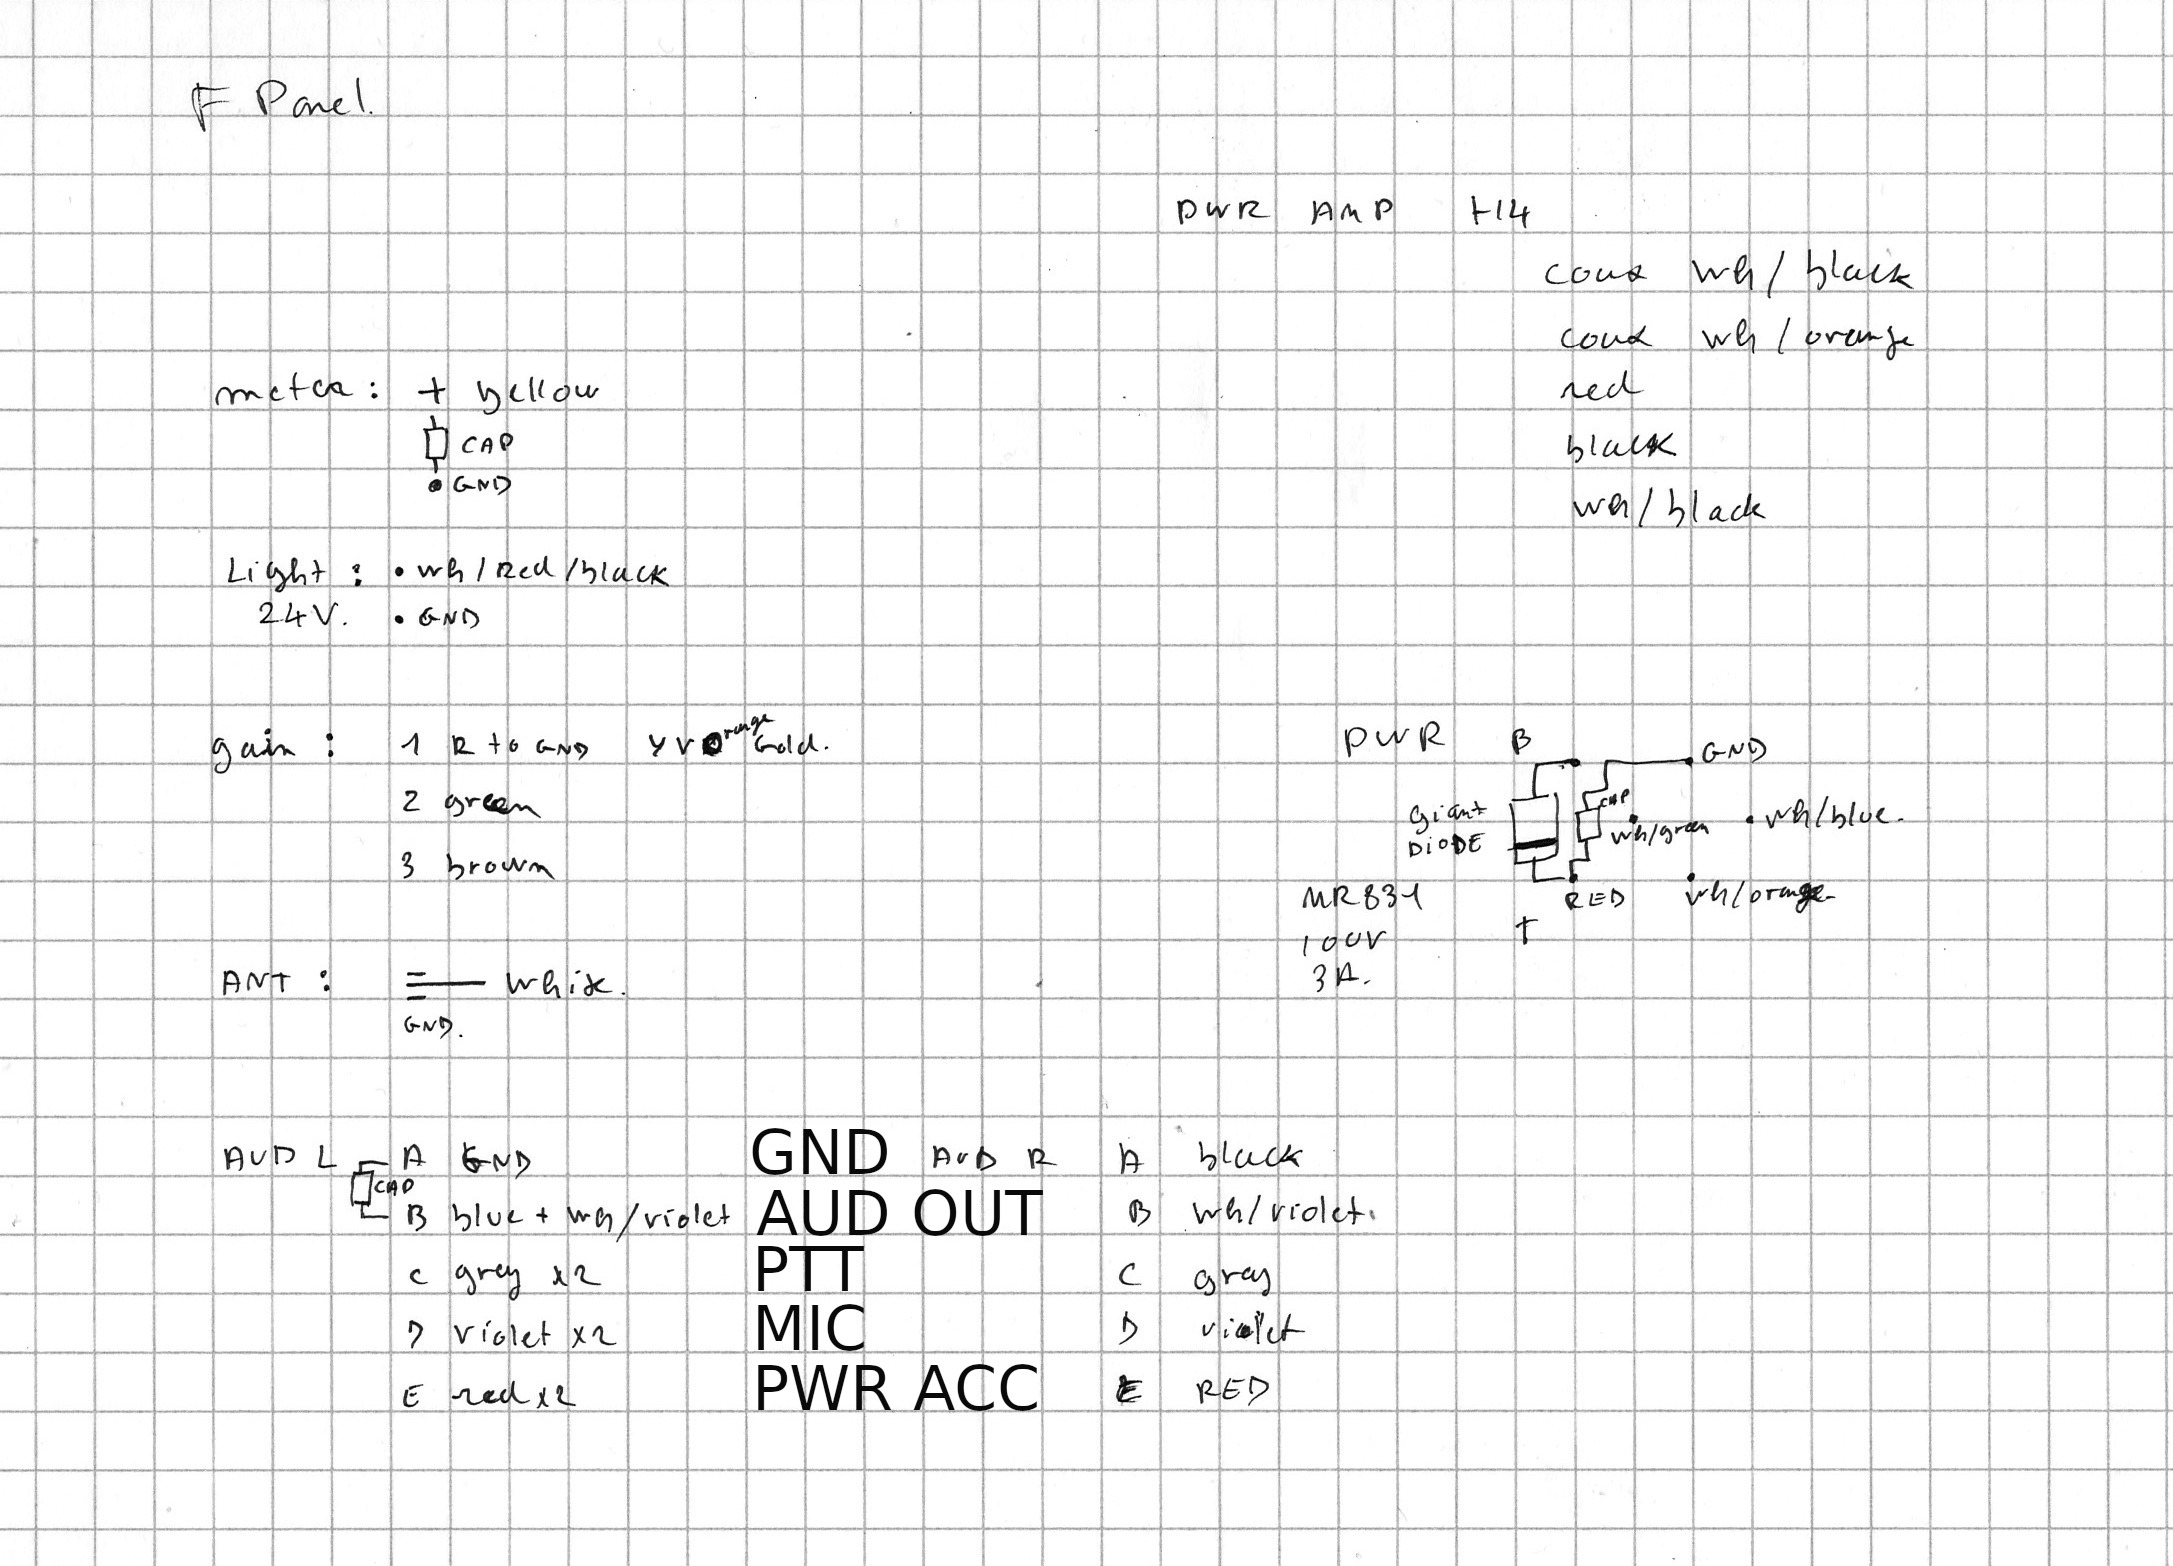 F Panel.
PWR AMP H14
coax wh/black
coax wh/orange
red
black
wh/black
meter: + yellow
CAP
GND
Light: • wh/Red/black
24V. • GND
gain: 1 R to GND Y V Orange Gold.
2 green
3 brown
PWR B GND
giant DIODE CAP wh/green • wh/blue.
MR831 RED wh/orange
100V +
3A.
ANT: white.
GND.
AUD L A GND GND AUD R A black
CAP
B blue + wh/violet AUD OUT B wh/violet.
C grey x2 PTT C gray
D violet x2 MIC D violet
E red x2 PWR ACC E RED